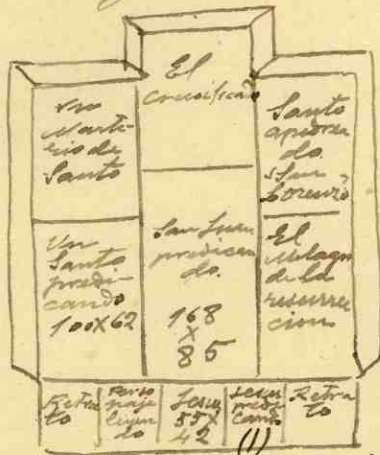 El
Crucificado
Un
Marti-
rio de
Santo
Santo
apedrea
do.
San
Lorenzo?
Un
Santo
predi-
cando
100X62
San Juan
predican
do.
168
X
85
El
Milagro
de la
resurrec
cion
Retra
to
Perso
naje
leyen
do
Jesus
55X
42
Jesus
predi
cando
(1)
Retra
to